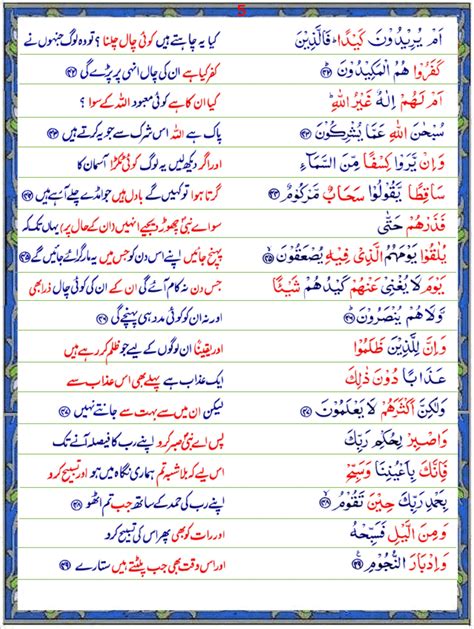 5
اَمْ يُرِيْدُوْنَ كَيْدًا ؕ فَالَّذِيْنَ کیا یہ چاہتے ہیں کوئی چال چلنا ؟ تو وہ لوگ جنہوں نے
كَفَرُوْا هُمُ الْمَكِيْدُوْنَ ﴿۴۲﴾ کفر کیا ہے ان کی چال انہی پر پڑے گی ﴿۴۲﴾
اَمْ لَهُمْ اِلٰهٌ غَيْرُ اللّٰهِ ؕ کیا ان کا ہے کوئی معبود اللہ کے سوا ؟
سُبْحٰنَ اللّٰهِ عَمَّا يُشْرِكُوْنَ ﴿۴۳﴾ پاک ہے اللہ اس شرک سے جو یہ کرتے ہیں ﴿۴۳﴾
وَاِنْ يَّرَوْا كِسْفًا مِّنَ السَّمَآءِ اور اگر دیکھ لیں یہ لوگ کوئی ٹکڑا آسمان کا
سَاقِطًا يَّقُوْلُوْا سَحَابٌ مَّرْكُوْمٌ ﴿۴۴﴾ گرتا ہوا تو کہیں گے بادل ہیں جو امڈے چلے آ رہے ہیں ﴿۴۴﴾
فَذَرْهُمْ حَتّٰى سو اے نبی چھوڑ دیجیے انہیں (ان کے حال پر) یہاں تک کہ
يُلٰقُوْا يَوْمَهُمُ الَّذِيْ فِيْهِ يُصْعَقُوْنَ ﴿۴۵﴾ پہنچ جائیں اپنے اس دن کو جس میں یہ مار گرائے جائیں گے ﴿۴۵﴾
يَوْمَ لَا يُغْنِيْ عَنْهُمْ كَيْدُهُمْ شَيْـًٔا جس دن نہ کام آئے گی ان کے ان کی چال ذرا بھی
وَّلَا هُمْ يُنْصَرُوْنَ ﴿۴۶﴾ اور نہ ان کو کوئی مدد ہی پہنچے گی ﴿۴۶﴾
وَاِنَّ لِلَّذِيْنَ ظَلَمُوْا اور یقینًا ان لوگوں کے لیے جو ظلم کر رہے ہیں
عَذَابًا دُوْنَ ذٰلِكَ ایک عذاب ہے پہلے بھی اس عذاب سے
وَلٰكِنَّ اَكْثَرَهُمْ لَا يَعْلَمُوْنَ ﴿۴۷﴾ لیکن ان میں سے بہت سے جانتے نہیں ﴿۴۷﴾
وَاصْبِرْ لِحُكْمِ رَبِّكَ پس اے نبی صبر کرو اپنے رب کا فیصلہ آنے تک
فَاِنَّكَ بِاَعْيُنِنَا وَسَبِّحْ اس لیے کہ بلا شبہ تم ہماری نگاہ میں ہو اور تسبیح کرو
بِحَمْدِ رَبِّكَ حِيْنَ تَقُوْمُ ﴿۴۸﴾ اپنے رب کی حمد کے ساتھ جب تم اٹھو ﴿۴۸﴾
وَمِنَ الَّيْلِ فَسَبِّحْهُ اور رات کو بھی پھر اس کی تسبیح کرو
وَاِدْبَارَ النُّجُوْمِ ﴿۴۹﴾ اور اس وقت بھی جب پلٹتے ہیں ستارے ﴿۴۹﴾